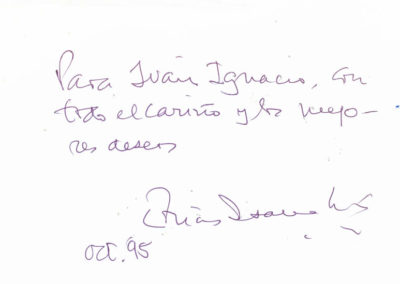 Para Iván Ignacio, con
todo el cariño y los mejo-
res deseos
Oct. 95